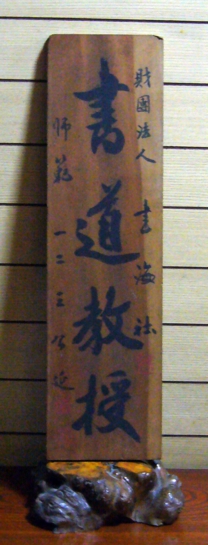 財團法人 書海社
書道教授
師範 一二三